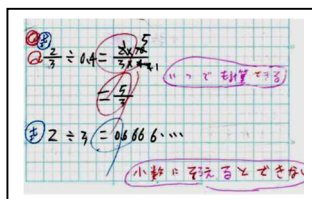 2/3 ÷ 0.4 = 2×10/3×4
= 5/3
いつでも計算できる
2 ÷ 3 = 0.6666…
小数に変えるとできない